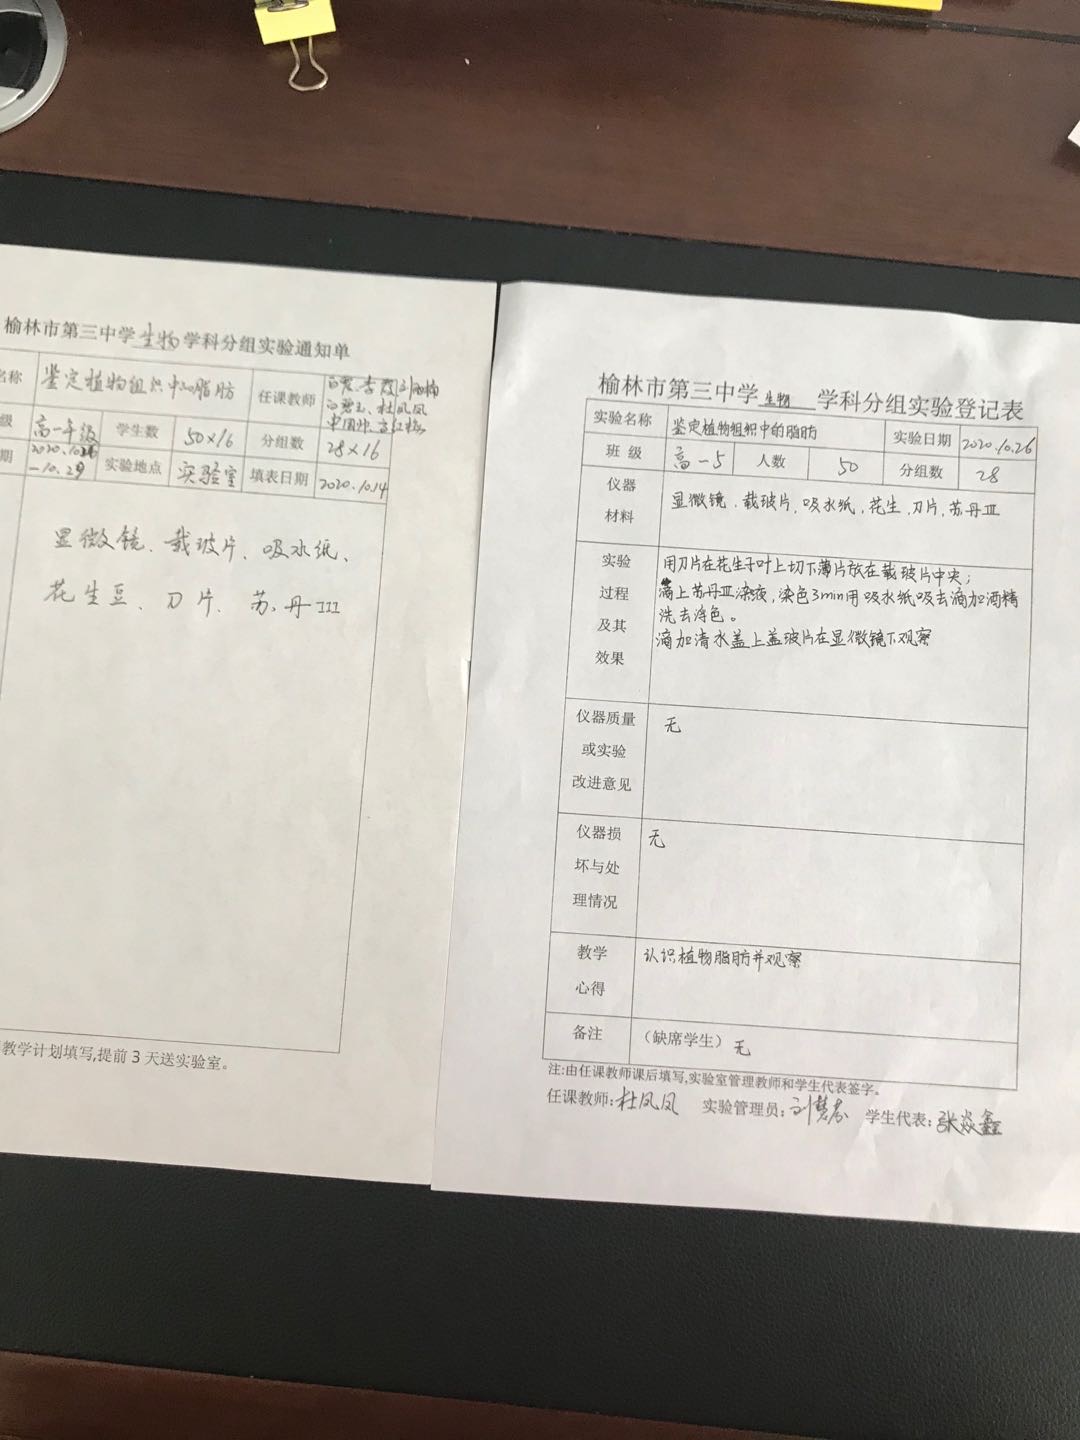 榆林市第三中学生物学科分组实验通知单
名称 鉴定植物组织中的脂肪 任课教师
杜凤凤
级 高一年级 学生数 50×16 分组数 28×16
期 2020.10.26 -10.29 实验地点 实验室 填表日期 2020.10.14
显微镜、载玻片、吸水纸、
花生豆、刀片、苏丹III
教学计划填写,提前3天送实验室。
榆林市第三中学生物学科分组实验登记表
实验名称 鉴定植物组织中的脂肪 实验日期 2020.10.26
班级 高一5 人数 50 分组数 28
仪器
材料
显微镜、载玻片、吸水纸、花生、刀片、苏丹III
实验
过程
及其
效果
用刀片在花生子叶上切下薄片放在载玻片中央;
滴上苏丹III染液,染色3min用吸水纸吸去滴加酒精
洗去浮色。
滴加清水盖上盖玻片在显微镜下观察
仪器质量
或实验
改进意见
无
仪器损
坏与处
理情况
无
教学
心得
认识植物脂肪并观察
备注 (缺席学生) 无
注:由任课教师课后填写,实验室管理教师和学生代表签字。
任课教师:杜凤凤 实验管理员: 学生代表:张焱鑫